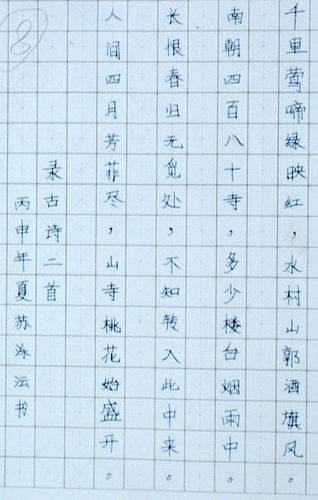 千里莺啼绿映红,水村山郭酒旗风。
南朝四百八十寺,多少楼台烟雨中。
长恨春归无觅处,不知转入此中来。
人间四月芳菲尽,山寺桃花始盛开。
录古诗二首
丙申年夏苏书
8